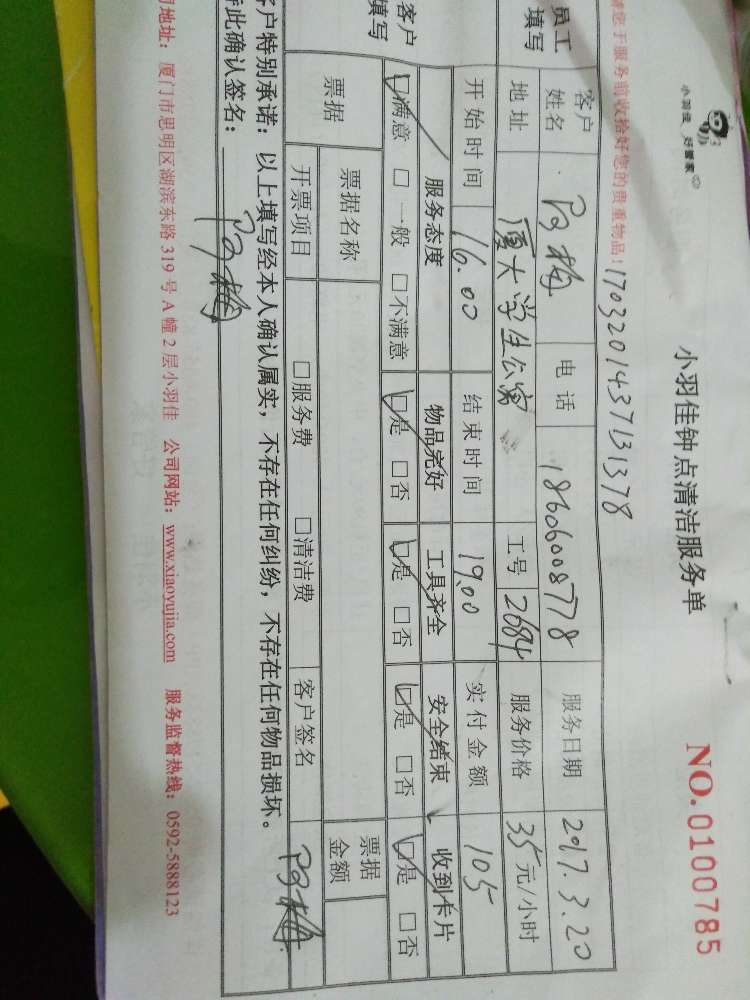 小羽佳 好管家
小羽佳钟点清洁服务单
NO.0100785
请您于服务前收拾好您的贵重物品！1703201437131378
员工填写 客户姓名 电话 18606008778 服务日期 2017.3.20
地址 厦大学生公寓 工号 2684 服务价格 35元/小时
开始时间 16.00 结束时间 19.00 实付金额 105
客户填写 服务态度 物品完好 工具齐全 安全结束 收到卡片
☑满意 □一般 □不满意 ☑是 □否 ☑是 □否 ☑是 □否 ☑是 □否
票据 票据名称 票据金额
开票项目 □服务费 □清洁费 客户签名
客户特别承诺：以上填写经本人确认属实，不存在任何纠纷，不存在任何物品损坏。
此确认签名：
地址：厦门市思明区湖滨东路319号A幢2层小羽佳 公司网站：www.xiaoyujia.com 服务监督热线：0592-5888123